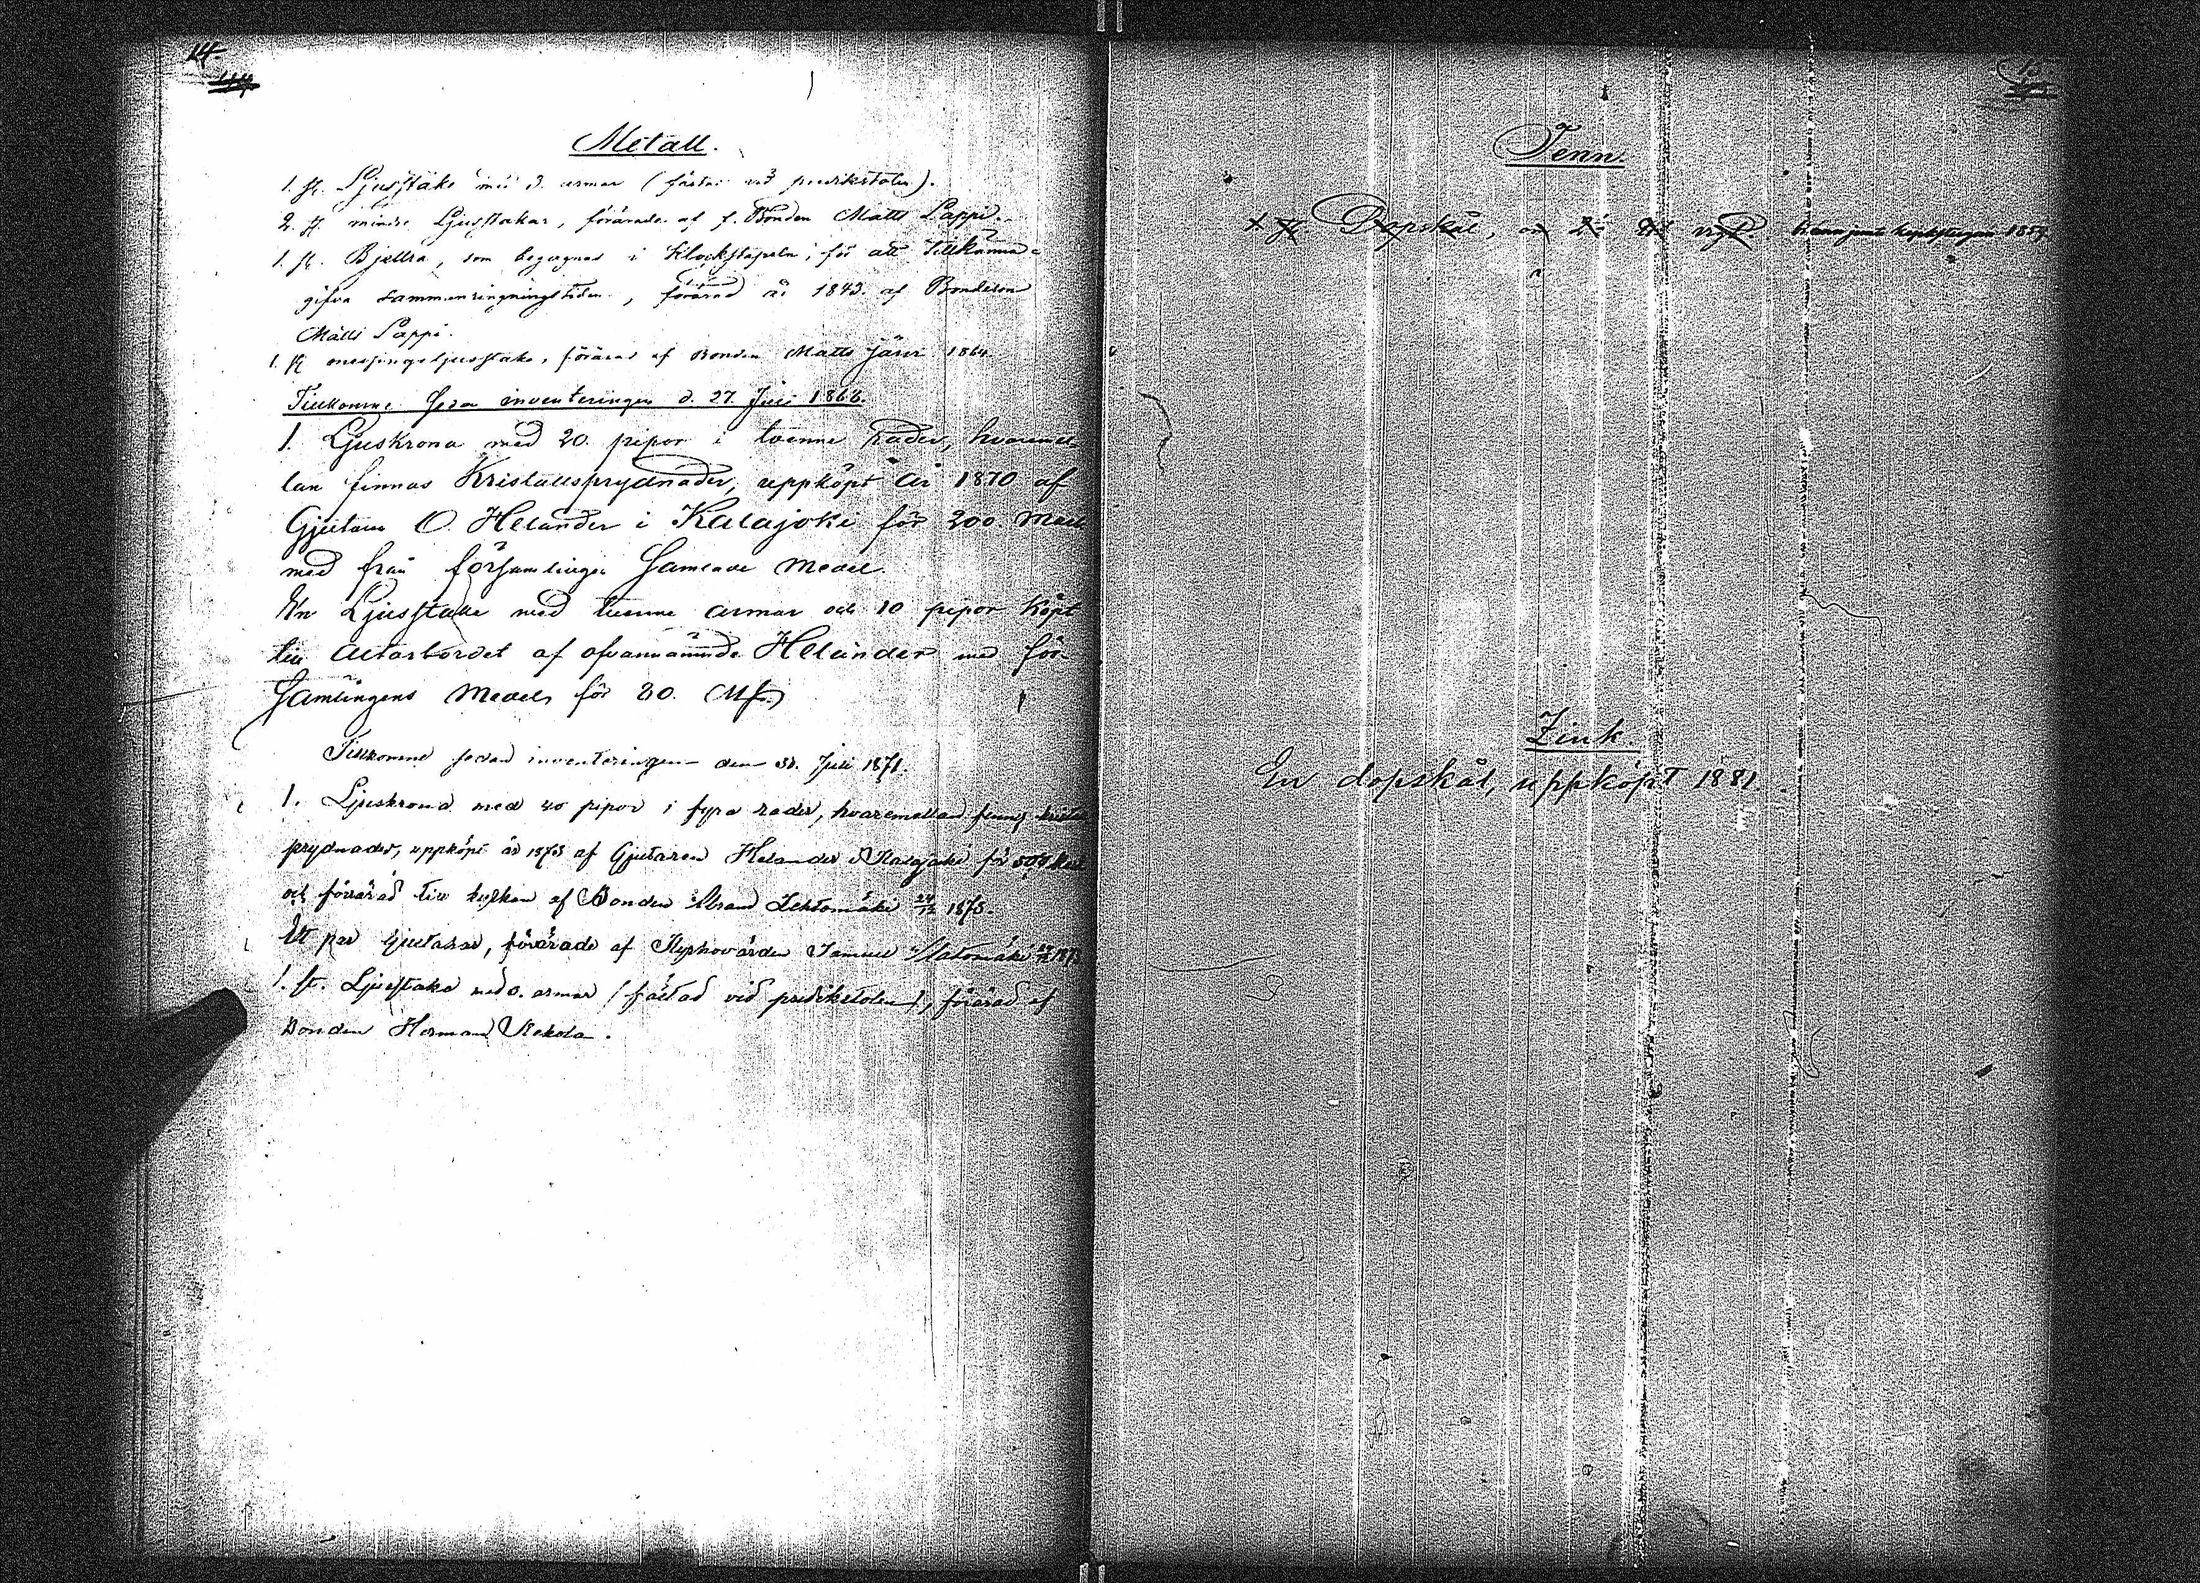 14.
Metall.
1. st. Ljusstake med 3. armar (fästad vid predikstolen).
2. st. mindre Ljusstakar, förärade af f. Bonden Matts Lappi.
1. st. Bjellra, som begagnas i Klockstapeln, för att Tillkänna-
gifva Sammanringningstiden, förärad år 1843. af Bondeson
Matts Lappi.
1. st messingsljusstake, förärad af Bonden Matts 1864
Tillkomne sedan inventeringen d. 27. Juli 1866.
1. Ljuskrona med 20. pipor i tvenne rader, hvaremel-
lan finnas Kristallsprydnader, uppköpt år 1870 af
Gjutaren O. Helander i Kalajoki för 200. Mark
med från församlingen Samlade Medel.
En Ljusstake med tvenne armar och 10 pipor köpt
till Altarbordet af ofvannämnde Helander med för-
Samlingens Medel, för 80. Mk.
Tillkomne sedan inventeringen den 31. Juli 1871.
1. Ljuskrona med 40 pipor i fyra rader, hvaremellan finnas
prydnader, uppköpt år 1875 af Gjutaren Helander i Kalajoki för 500
och förärad till kyrkan af Bonden Abram Lehtomäki 24/12 1875.
Ett par ljusstakar, förärade af Kyrkovärden Samuel
1. st. Ljusstake med armar (fästad vid predikstolen), förärad af
Bonden Herman Rekola.
15
Tenn.
1 st. Dopskål, vigt. 1859.
Zink.
En dopskål, uppköpt 1881.